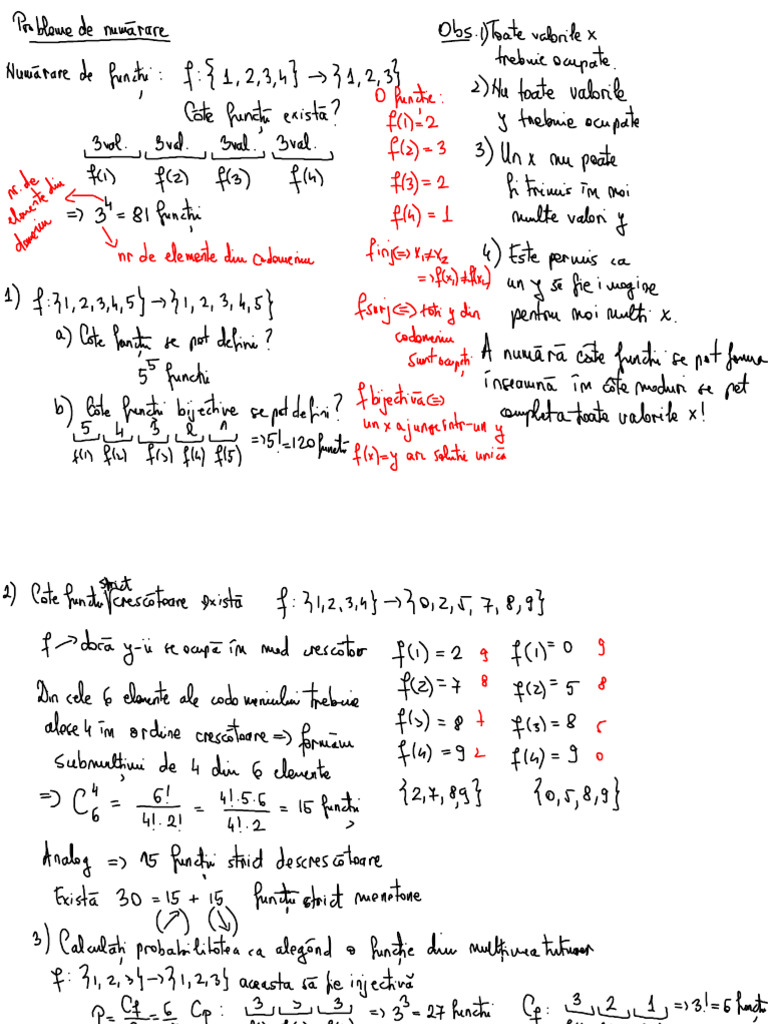 Probleme de numărare
Numărare de funcții: f:{1,2,3,4} → {1,2,3}
Câte funcții există?
3val. 3val. 3val. 3val.
f(1) f(2) f(3) f(4)
=> 3^4 = 81 funcții
nr. de
elemente din
domeniu
nr de elemente din codomeniu
O funcție:
f(1)=2
f(2)=3
f(3)=2
f(4)=1
f inj <=> x1≠x2
=> f(x1)≠f(x2)
f surj <=> toți y din
codomeniu
sunt ocupați
f bijectivă <=>
un x ajunge într-un y
f(x)=y are soluție unică
Obs. 1) Toate valorile x
trebuie ocupate.
2) Nu toate valorile
y trebuie ocupate
3) Un x nu poate
fi trimis în mai
multe valori y
4) Este permis ca
un y să fie imagine
pentru mai mulți x.
A număra câte funcții se pot forma
înseamnă în câte moduri se pot
completa toate valorile x!
1) f:{1,2,3,4,5} → {1,2,3,4,5}
a) Câte funcții se pot defini?
5^5 funcții
b) Câte funcții bijective se pot defini?
5 4 3 2 1
f(1) f(2) f(3) f(4) f(5) => 5! = 120 funcții
2) Câte funcții strict crescătoare există f:{1,2,3,4} → {0,2,5,7,8,9}
f ↗ dacă y-ii se ocupă în mod crescător
Din cele 6 elemente ale codomeniului trebuie
alese 4 în ordine crescătoare => formăm
submulțimi de 4 din 6 elemente
=> C_6^4 = 6!/(4!·2!) = (4!·5·6)/(4!·2) = 15 funcții
f(1)=2 9 f(1)=0 9
f(2)=7 8 f(2)=5 8
f(3)=8 7 f(3)=8 5
f(4)=9 2 f(4)=9 0
{2,7,8,9} {0,5,8,9}
Analog => 15 funcții strict descrescătoare
Există 30 = 15 + 15 funcții strict monotone
(↗) (↘)
3) Calculați probabilitatea ca alegând o funcție din mulțimea tuturor
f:{1,2,3} → {1,2,3} aceasta să fie injectivă
P = Cf/ = 6/ Cp: 3 3 3 => 3^3 = 27 funcții Cf: 3 2 1 => 3! = 6 funcții